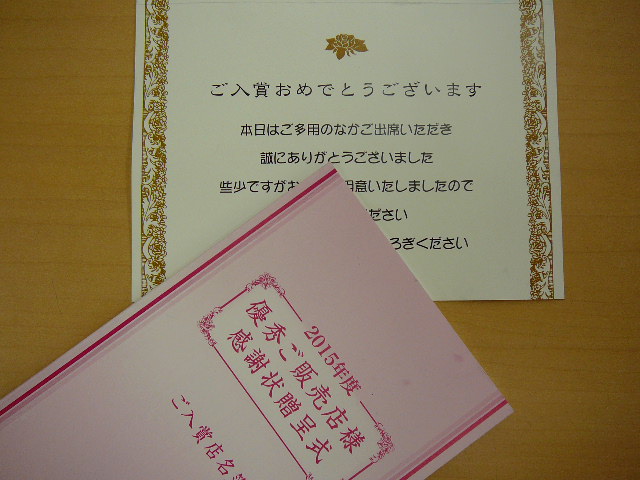 ご入賞おめでとうございます
本日はご多用のなかご出席いただき
誠にありがとうございました
些少ですがお 用意いたしましたので
ださい
ろぎください
2015年度
優秀ご販売店様
感謝状贈呈式
ご入賞店名